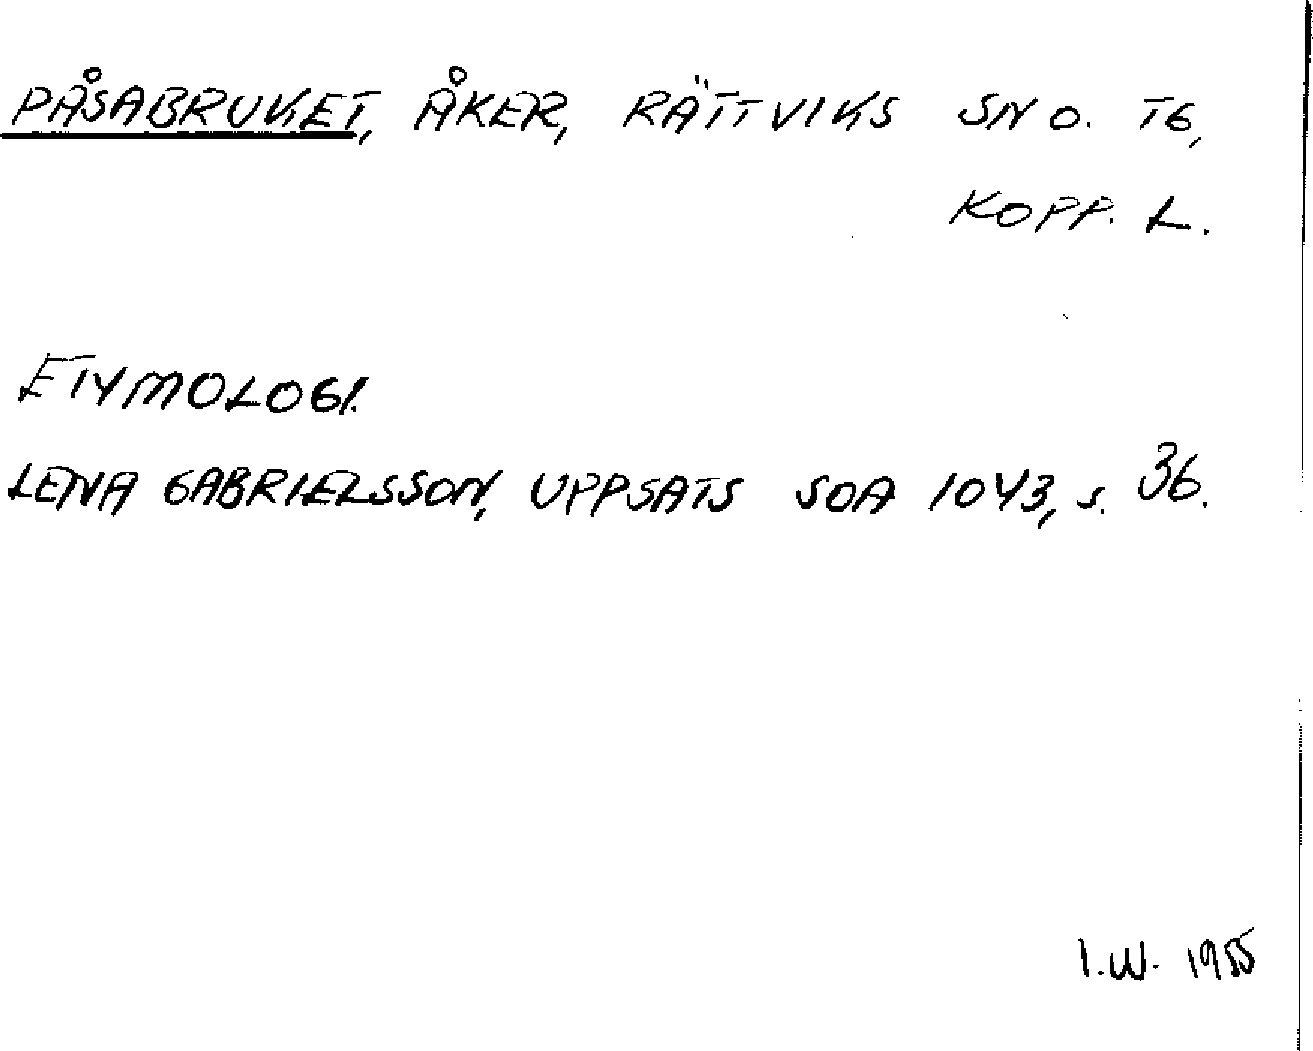 PÅSABRUKET, ÅKER, RÄTTVIKS SN O. TG,
KOPP. L.
ETYMOLOGI.
LENA GABRIELSSON, UPPSATS SOA 1043, s. 36.
I.W. 1955